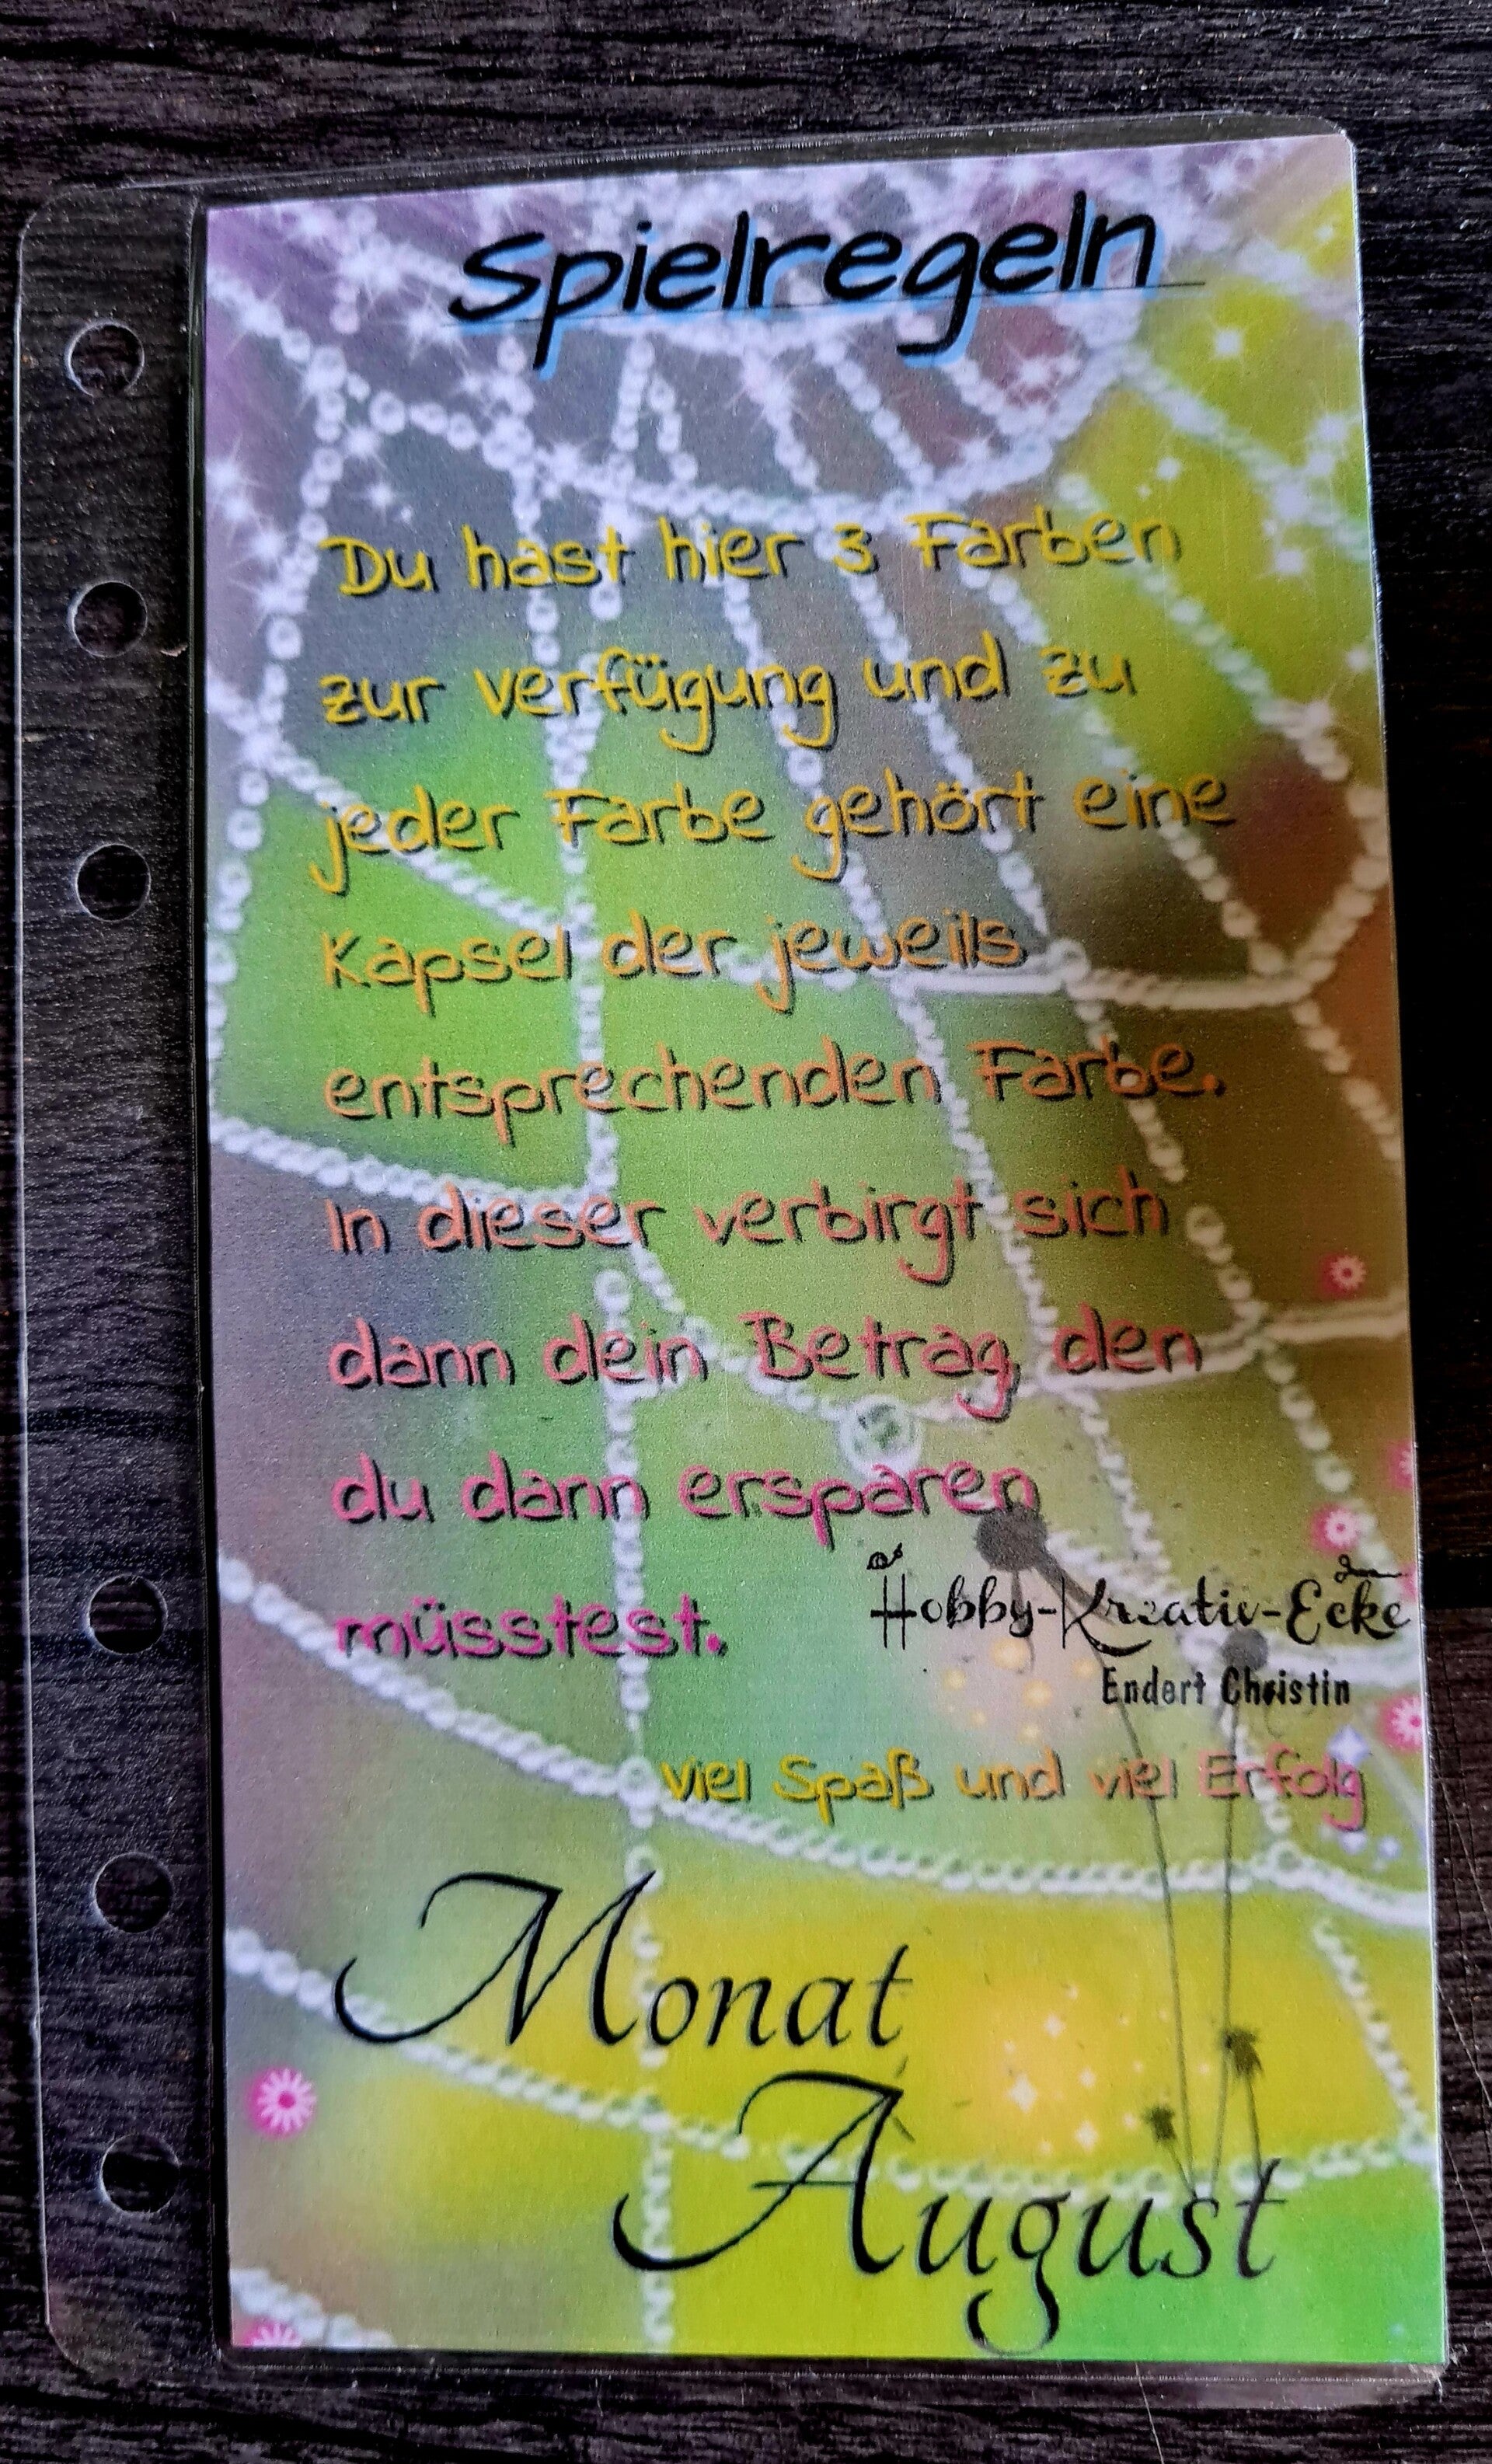 Spielregeln
Du hast hier 3 Farben
zur verfügung und zu
jeder Farbe gehört eine
Kapsel der jeweils
entsprechenden Farbe.
In dieser verbirgt sich
dann dein Betrag den
du dann ersparen
müsstest.
Hobby-Kreativ-Ecke
Endert Christin
viel Spaß und viel Erfolg
Monat
August